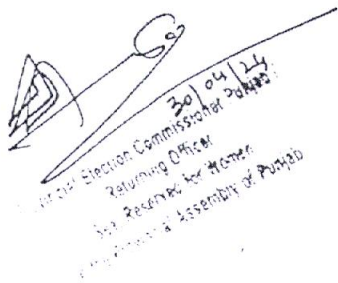 30/04/24
Election Commissioner Punjab
Returning Officer
Reserved for Women
Assembly of Punjab